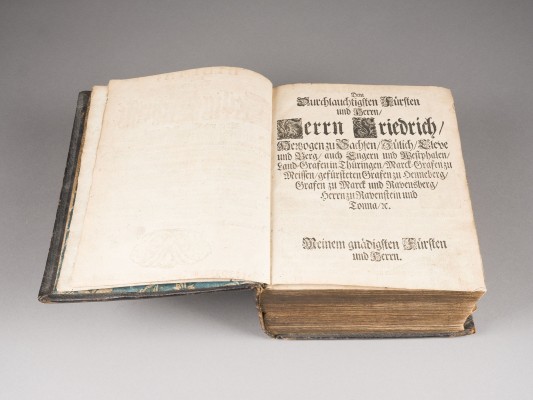 Dem
Durchlauchtigsten Fürsten
und Herrn/
Herrn Friedrich/
Hertzogen zu Sachsen/ Jülich/ Cleve
und Berg/ auch Engern und Westphalen/
Land-Grafen in Thüringen/ Marck-Grafen zu
Meissen/ gefürsteten Grafen zu Henneberg/
Grafen zu Marck und Ravensberg/
Herrn zu Ravenstein und
Tonna/ ꝛc.
Meinem gnädigsten Fürsten
und Herrn.